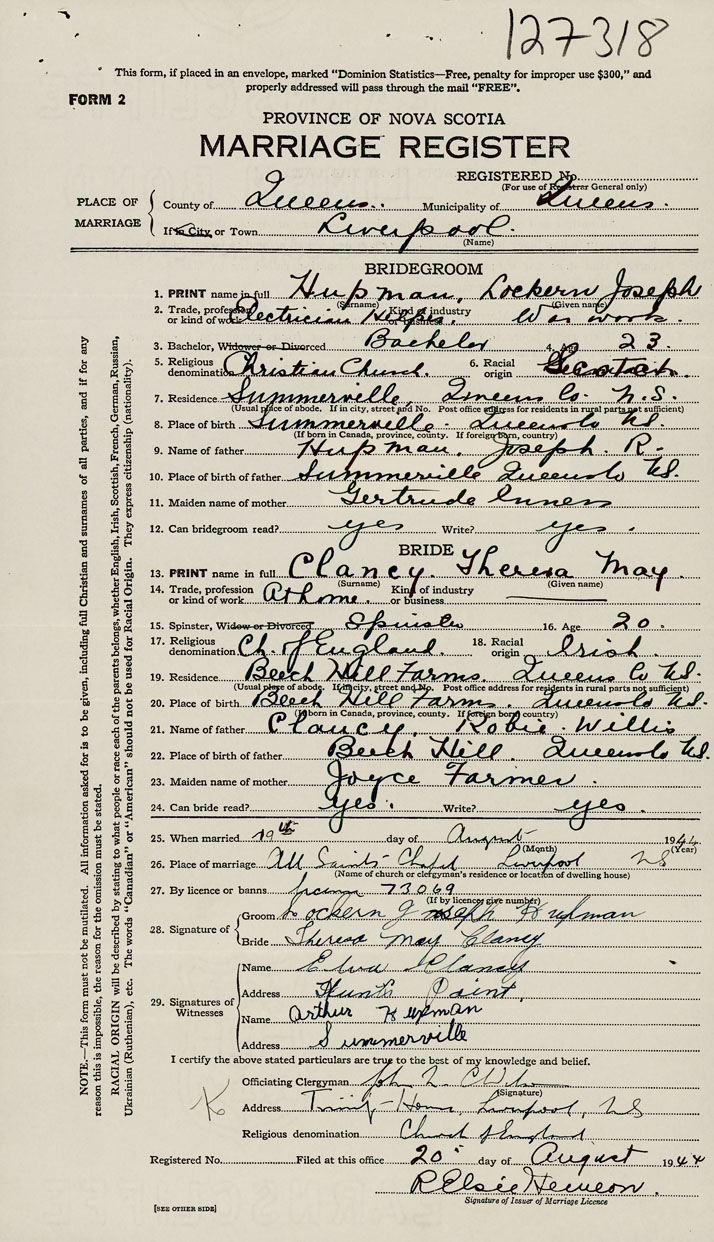 127318
This form, if placed in an envelope, marked "Dominion Statistics—Free, penalty for improper use $300," and
properly addressed will pass through the mail "FREE".
FORM 2
PROVINCE OF NOVA SCOTIA
MARRIAGE REGISTER
REGISTERED No.
(For use of Registrar General only)
PLACE OF MARRIAGE
County of Queens. Municipality of Queens.
If in City, or Town Liverpool.
(Name)
BRIDEGROOM
1. PRINT name in full Hupman, Lockern Joseph
(Surname) (Given name)
2. Trade, profession or kind of work Electrician Helper. Kind of industry or business War work.
3. Bachelor, Widower or Divorced Bachelor 4. Age 23.
5. Religious denomination Christian Church. 6. Racial origin
7. Residence Summerville, Queens Co. N.S.
(Usual place of abode. If in city, street and No. Post office address for residents in rural parts not sufficient)
8. Place of birth Summerville. Queens Co NS.
(If born in Canada, province, county. If foreign born, country)
9. Name of father Hupman, Joseph. R.
10. Place of birth of father Summerville Queens Co NS.
11. Maiden name of mother Gertrude Inness
12. Can bridegroom read? yes Write? yes.
BRIDE
13. PRINT name in full Clancy. Theresa May.
(Surname) (Given name)
14. Trade, profession or kind of work At home. Kind of industry or business
15. Spinster, Widow or Divorced Spinster 16. Age 20.
17. Religious denomination Ch. of England. 18. Racial origin Irish.
19. Residence Beech Hill Farms. Queens Co NS.
(Usual place of abode. If in city, street and No. Post office address for residents in rural parts not sufficient)
20. Place of birth Beech Hill Farms. Queens Co NS.
(If born in Canada, province, county. If foreign born, country)
21. Name of father Clancy, Robie. Willis
22. Place of birth of father Beech Hill Queens Co NS.
23. Maiden name of mother Joyce Farmer.
24. Can bride read? yes. Write? yes.
25. When married 19th day of August 1944
(Month) (Year)
26. Place of marriage All Saints Chapel Liverpool NS
(Name of church or clergyman's residence or location of dwelling house)
27. By licence or banns license 73069
(If by licence, give number)
28. Signature of
Groom Lockern Joseph Hupman
Bride Theresa May Clancy
29. Signatures of Witnesses
Name Elva Clancy
Address Hunts Point,
Name Arthur Hupman
Address Summerville
I certify the above stated particulars are true to the best of my knowledge and belief.
Officiating Clergyman John
(Signature)
Address Trinity Liverpool, NS
Religious denomination Church of England
Registered No. Filed at this office 20 day of August 1944
R Elsie Hemeon.
Signature of Issuer of Marriage Licence
[SEE OTHER SIDE]
NOTE.—This form must not be mutilated. All information asked for is to be given, including full Christian and surnames of all parties, and if for any
reason this is impossible, the reason for the omission must be stated.
RACIAL ORIGIN will be described by stating to what people or race each of the parents belongs, whether English, Irish, Scottish, French, German, Russian,
Ukrainian (Ruthenian), etc. The words "Canadian" or "American" should not be used for Racial Origin. They express citizenship (nationality).